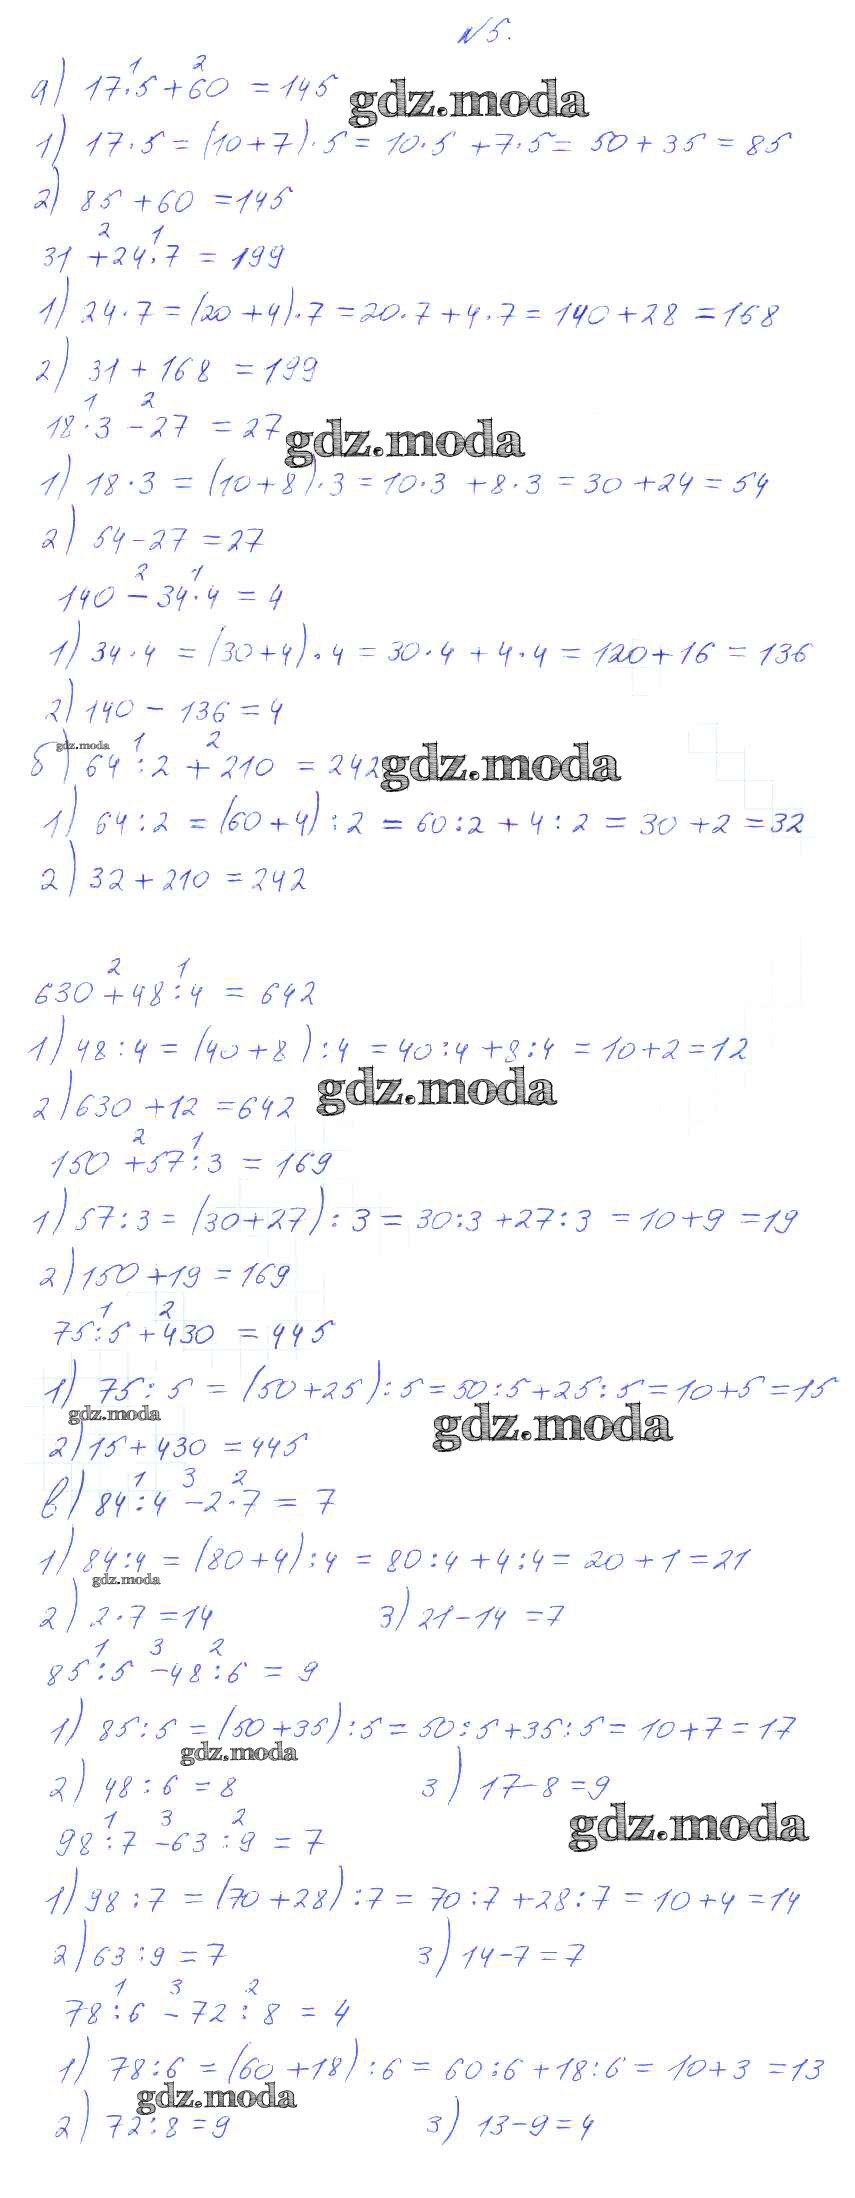 №5.
1 2
а) 17·5+60 = 145
gdz.moda
1) 17·5 = (10+7)·5 = 10·5 +7·5 = 50+35 = 85
2) 85+60 =145
2 1
31 +24·7 = 199
1) 24·7 = (20 +4)·7 =20·7+4·7 = 140+28 =168
2) 31+168 =199
1 2
18·3 -27 = 27
gdz.moda
1) 18·3 = (10+8)·3 = 10·3 +8·3 = 30 +24 = 54
2) 54-27 =27
2 1
140 - 34·4 = 4
1) 34·4 = (30+4)·4 = 30·4 + 4·4 = 120+16 = 136
2) 140 - 136 = 4
gdz.moda
1 2
б) 64:2 + 210 = 242
gdz.moda
1) 64:2 = (60+4):2 = 60:2 + 4:2 = 30 +2 =32
2) 32+210 =242
2 1
630 +48:4 = 642
1) 48:4 = (40+8):4 =40:4 +8:4 = 10+2=12
2) 630 +12 =642
gdz.moda
2 1
150 +57:3 = 169
1) 57:3 = (30+27):3 = 30:3 +27:3 = 10+9 =19
2) 150+19 =169
1 2
75:5 +430 = 445
1) 75:5 = (50+25):5 = 50:5+25:5 =10+5 =15
gdz.moda
gdz.moda
2) 15+430 =445
1 3 2
в) 84:4 -2·7 = 7
1) 84:4 = (80+4):4 = 80:4 +4:4 = 20 +1 =21
gdz.moda
2) 2·7 =14 3) 21-14 =7
1 3 2
85:5 -48:6 = 9
1) 85:5 = (50+35):5 = 50:5+35:5 = 10+7 = 17
gdz.moda
2) 48:6 = 8 3) 17-8 =9
gdz.moda
1 3 2
98:7 -63:9 = 7
1) 98:7 = (70+28):7 = 70:7 +28:7 = 10+4 =14
2) 63:9 = 7 3) 14-7 =7
1 3 2
78:6 -72:8 = 4
1) 78:6 = (60 +18):6 = 60:6 +18:6 = 10+3 =13
gdz.moda
2) 72:8 =9 3) 13-9 =4